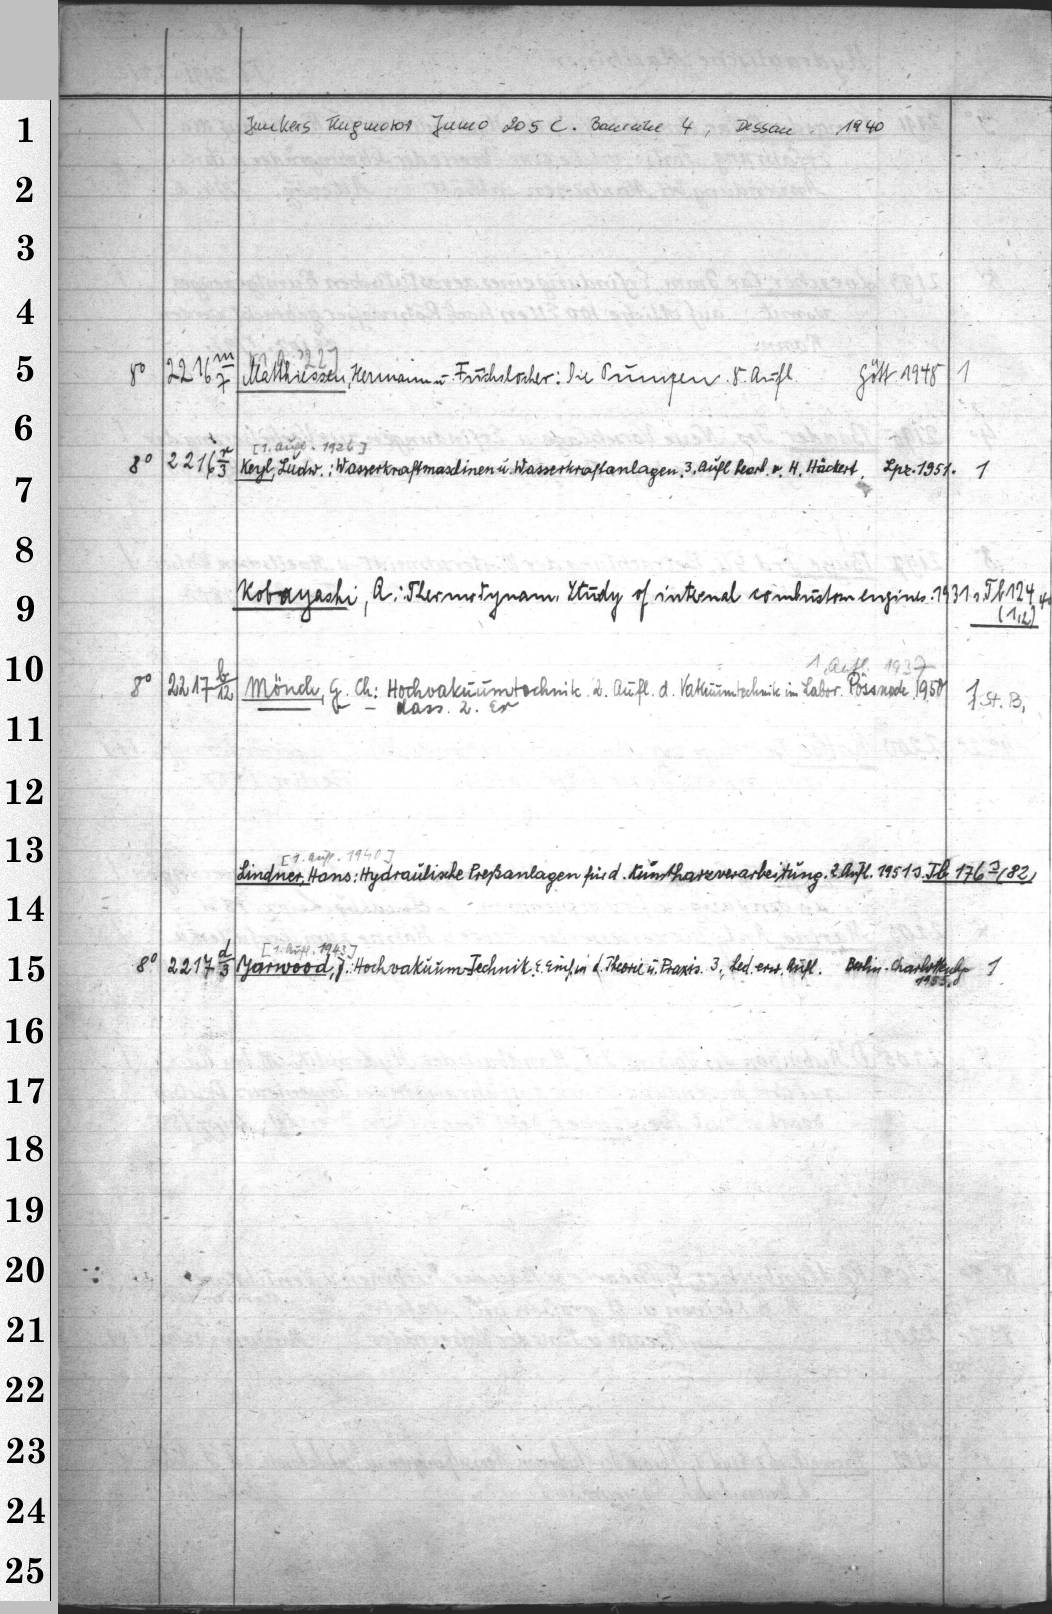 1
Junkers Flugmotor Jumo 205 C. Baureihe 4, Dessau 1940
2
3
4
5
8° 2216 m/7 Matthiessen, Hermann u. Fuchslocher: Die Pumpen. 8. Aufl. Gött 1948 1
6
[1. Aufl. 1926]
8° 2216 r/3 Keyl, Ludw.: Wasserkraftmaschinen u. Wasserkraftanlagen. 3. Aufl bearb. v. H. Häckert. Lpz. 1951. 1
7
8
Kobayashi, A.: Thermodynam. Study of internal combustion engines. 1931 s. Tb 124
9
(1,2)
10
1. Aufl. 1937
8° 2217 b/12 Mönch, G. Ch: Hochvakuumtechnik. 2. Aufl. d. Vakuumtechnik im Labor. Pössneck 1950 1
dass. 2. Ex St. B.
11
12
13
[1. Aufl. 1940]
Lindner, Hans: Hydraulische Preßanlagen für d. Kunstharzverarbeitung. 2. Aufl. 1951 s. Tb 176 (82)
14
[1. Aufl. 1943]
8° 2217 d/3 Yarwood, J.: Hochvakuum-Technik. E. Einf. in d. Theorie u. Praxis. 3, bed. erw. Aufl. Berlin-Charlottenbg 1
15
1955.
16
17
18
19
20
21
22
23
24
25